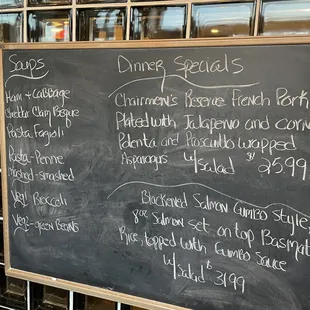 Soups
Ham + Cabbage
Cheddar Clam Bisque
Pasta Fagioli
Pasta - Penne
Mashed - smashed
Veg! Broccoli
Veg - green Beans
Dinner Specials
Chairmen's Reserve French Pork
Plated with Jalapeno and corn
Polenta and Proscuitto wrapped
Asparagus w/Salad $25.99
Blackened Salmon Gumbo Style,
8oz Salmon set on top Basmat
Rice, topped with Gumbo Sauce
w/Salad $31.99